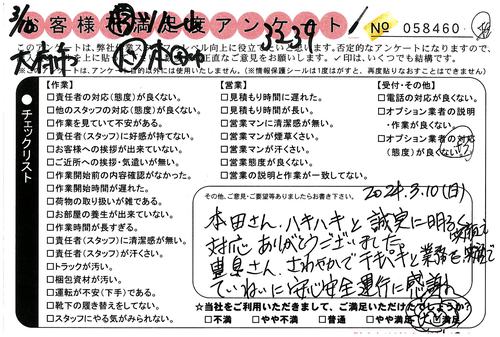 3/10
お客様満足度アンケート
3239
No 058460
このアンケートは、弊社
レベル向上に役立て
否定的なアンケートになりますので、
直なご意見をお願いします。✓印は、いくつでも結構です。
以外には使用いたしません。(※情報保護シールは1度がすと、再度貼りなおすことはできません)
チェックリスト
【作業】
□責任者の対応(態度)が良くない。
□他のスタッフの対応(態度)が良くない。
□作業を見ていて不安がある。
□責任者(スタッフ)に好感が持てない。
□お客様への挨拶が出来ていない。
□ご近所への挨拶・気遣いが無い。
□作業開始前の内容確認がなかった。
□作業開始時間が遅れた。
□荷物の取り扱いが雑である。
□お部屋の養生が出来ていない。
□作業時間が長すぎる。
□責任者(スタッフ)に清潔感が無い。
□責任者(スタッフ)が汗くさい。
□トラックが汚い。
□梱包資材が汚い。
□運転が不安(下手)である。
□靴下の履き替えをしてない。
□スタッフにやる気がみられない。
【営業】
□見積もり時間に遅れた。
□見積もり時間が長い。
□営業マンに清潔感が無い。
□営業マンが煙草くさい。
□営業マンが汗くさい。
□営業態度が良くない。
□営業の説明と作業が一致してない。
【受付・その他】
□電話の対応が良くない。
□オプション業者の説明
・作業が良くない。
□オプション業者の対応
(態度)が良くない。
その他、ご意見・ご要望等ありましたらお書き下さい。
2024.3.10(日)
本田さん、ハキハキと誠実に明るく
対応ありがとうございました。
さん、さわやかでテキパキと業務を
ていねいに安心安全運行に感謝
☆当社をご利用いただきまして、ご満足いただけたでしょうか?
□不満 □やや不満 □普通 □やや満足 □大満足